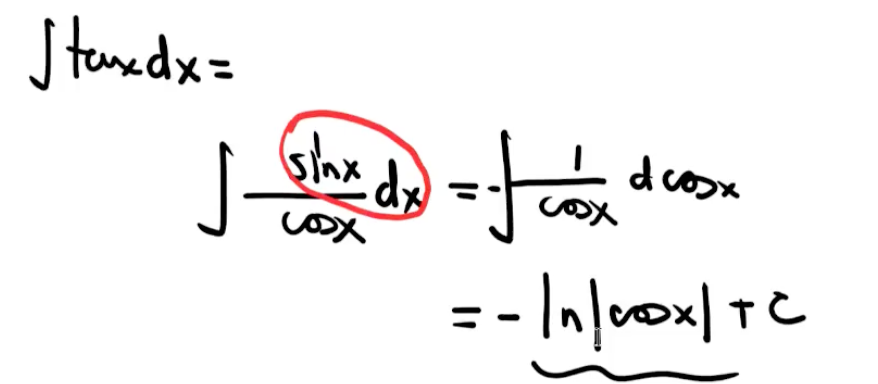 ∫tanxdx=
∫ sinx/cosx dx = -∫ 1/cosx dcosx
= -ln|cosx|+C